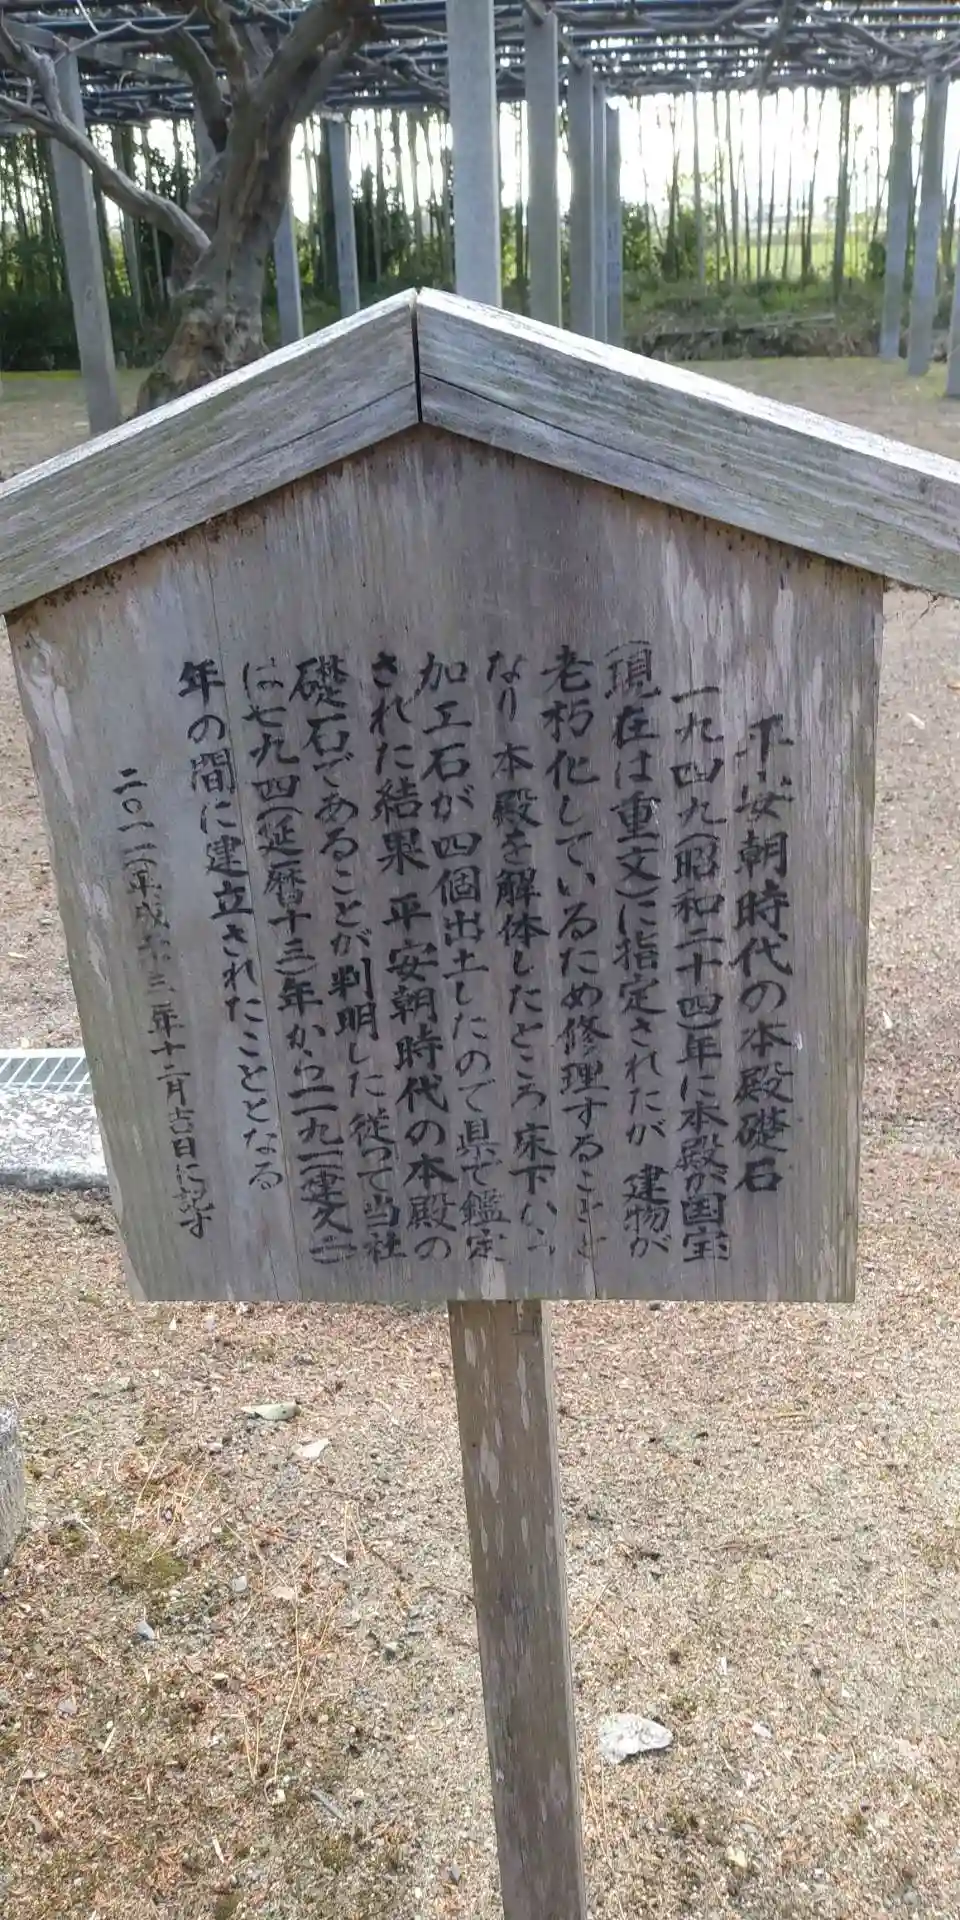 平安朝時代の本殿礎石
一九四九(昭和二十四)年に本殿が国宝
(現在は重文)に指定されたが 建物が
老朽化しているため修理することと
なり 本殿を解体したところ床下から
加工石が四個出土したので県で鑑定
された結果 平安朝時代の本殿の
礎石であることが判明した従って当社
は七九四(延暦十三)年から一一九一(建久二)
年の間に建立されたこととなる
二〇一一(平成二十三)年十二月 日に記す